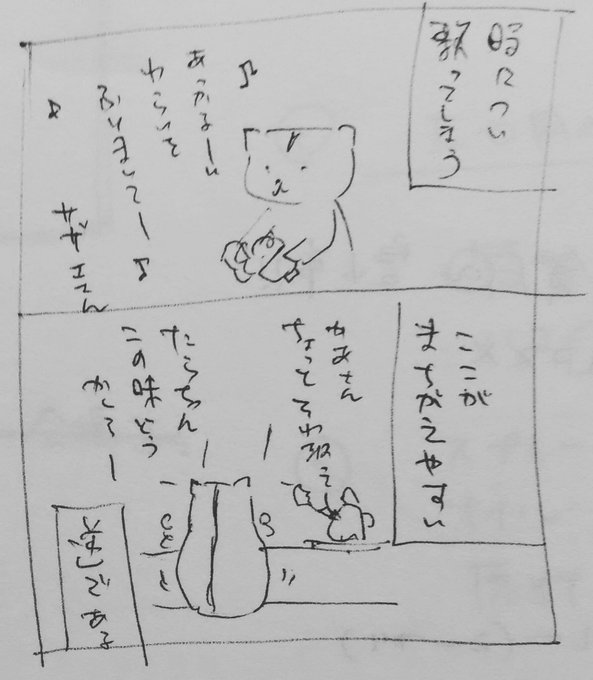 時につい
歌ってしまう
♪
あっかるーい
わらいを
ふりまいてー♪
♪
サザエさん
ここが
まちがえやすい
かあさん
ちょっとそれ取って
たらちゃん
この味どう
かなー
である